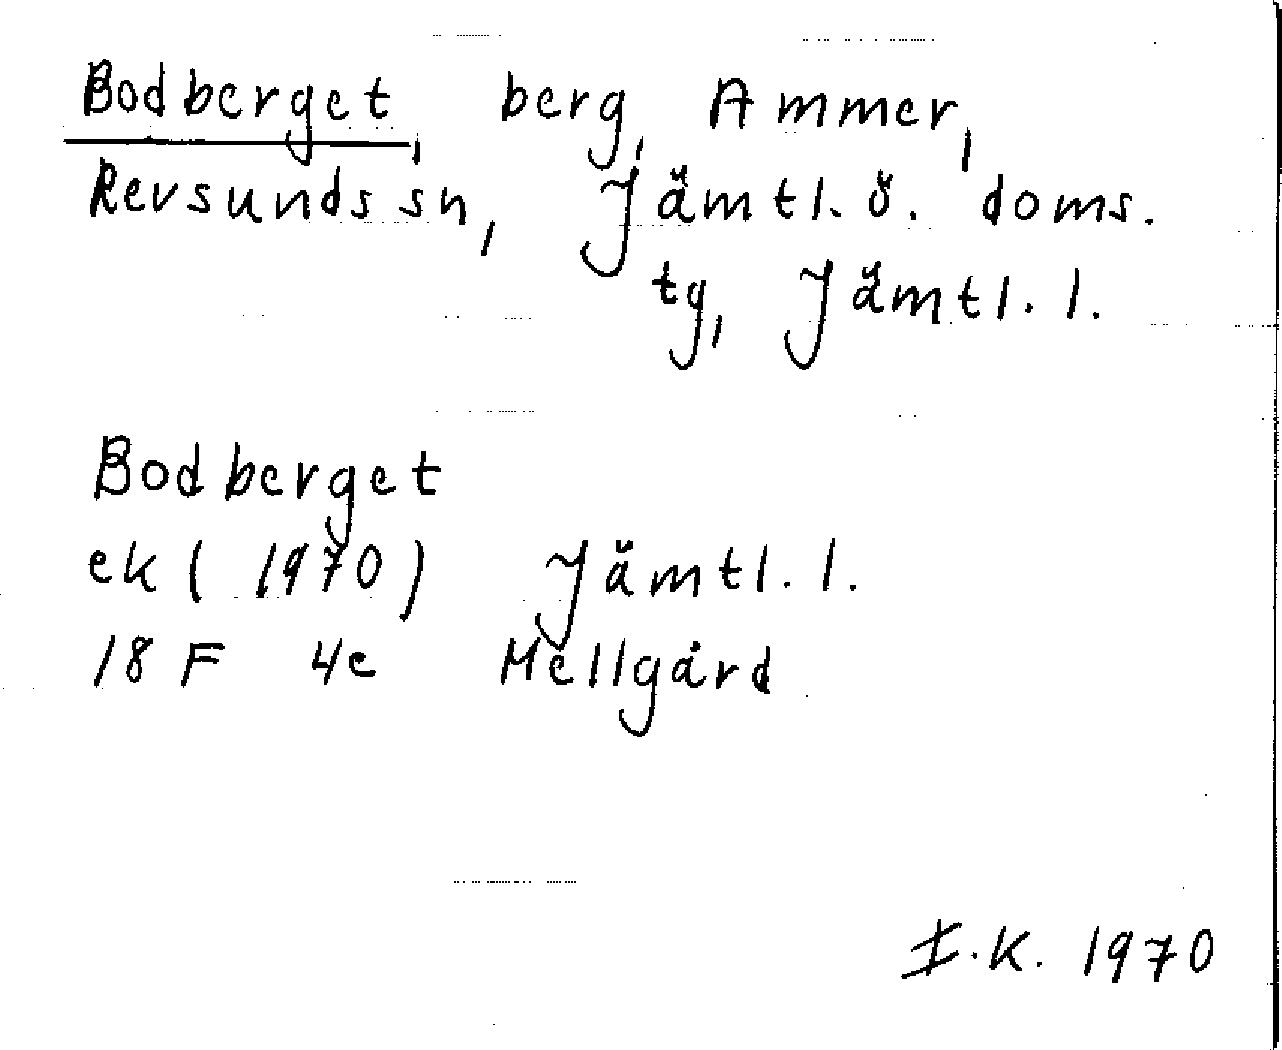 Bodberget, berg, Ammer,
Revsunds sn, Jämtl. ö. doms.
tg, Jämtl. l.
Bodberget
ek (1970) Jämtl. l.
18 F 4e Mellgård
I.K. 1970